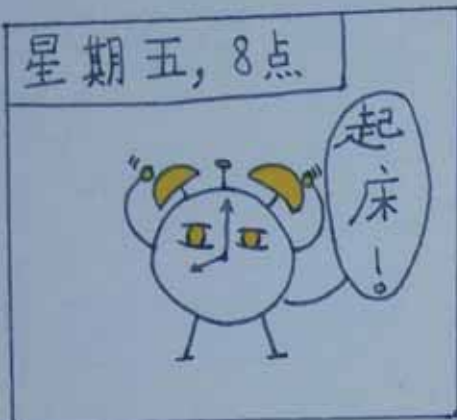 星期五, 8点
起
床
!